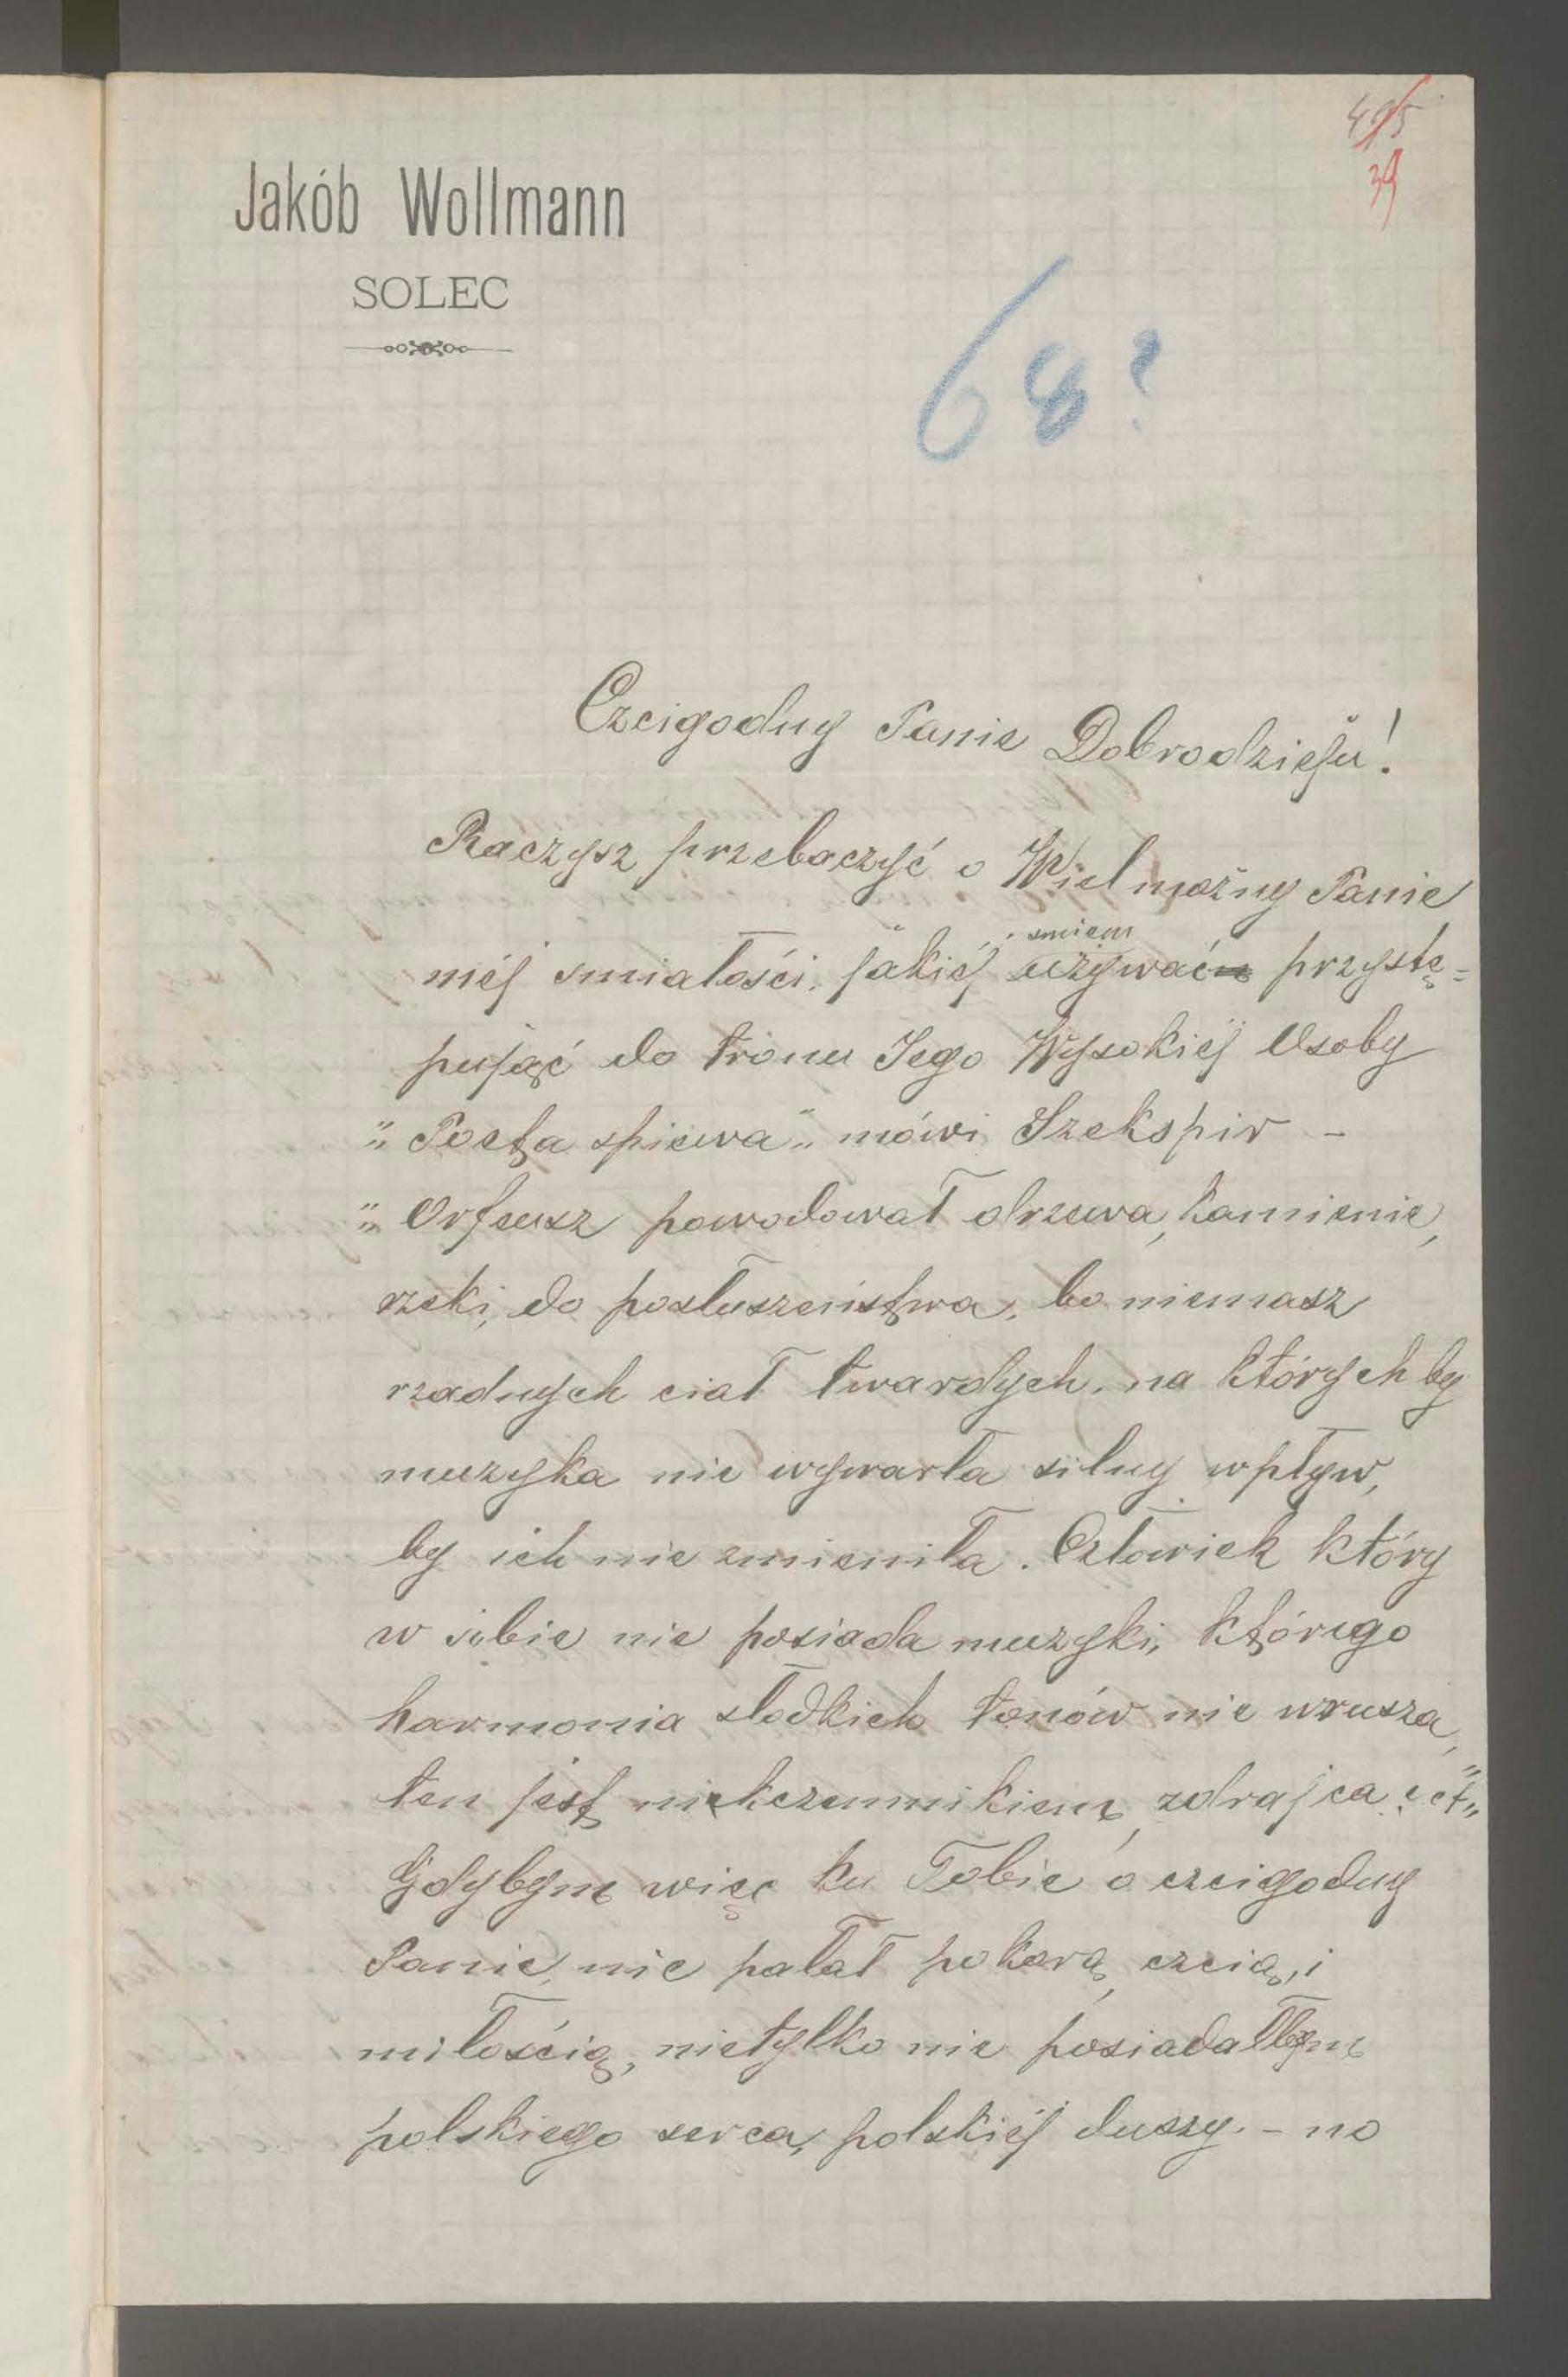 39
Jakób Wollmann
SOLEC
68?
Czcigodny Panie Dobrodzieju!
Raczysz przebaczyć o Wielmożny Panie
śmiem
méj smiałości, jakiéj używać przystę=
pująć do tronu Jego Wysokiéj Osoby
„Poeta spiewa" mówi Szekspir -
„Orfeusz powodował drzewa, kamienie,
rzeki, do posłuszeństwa, bo niemasz
rzadnych ciał twardych, na których by
muzyka nie wywarła silny wpływ,
by ich nie zmieniła. Człowiek który
w sobie nie posiada muzyki, którego
harmonia słodkich tonów nie wzrusza,
ten jest nikczemnikiem, zdrajca ect"
Gdybym więc ku Tobie o czcigodny
Panie, nie pałał pokorą, czcią, i
miłością, nietylko nie posiadałbym
polskiego serca, polskiéj duszy. - no